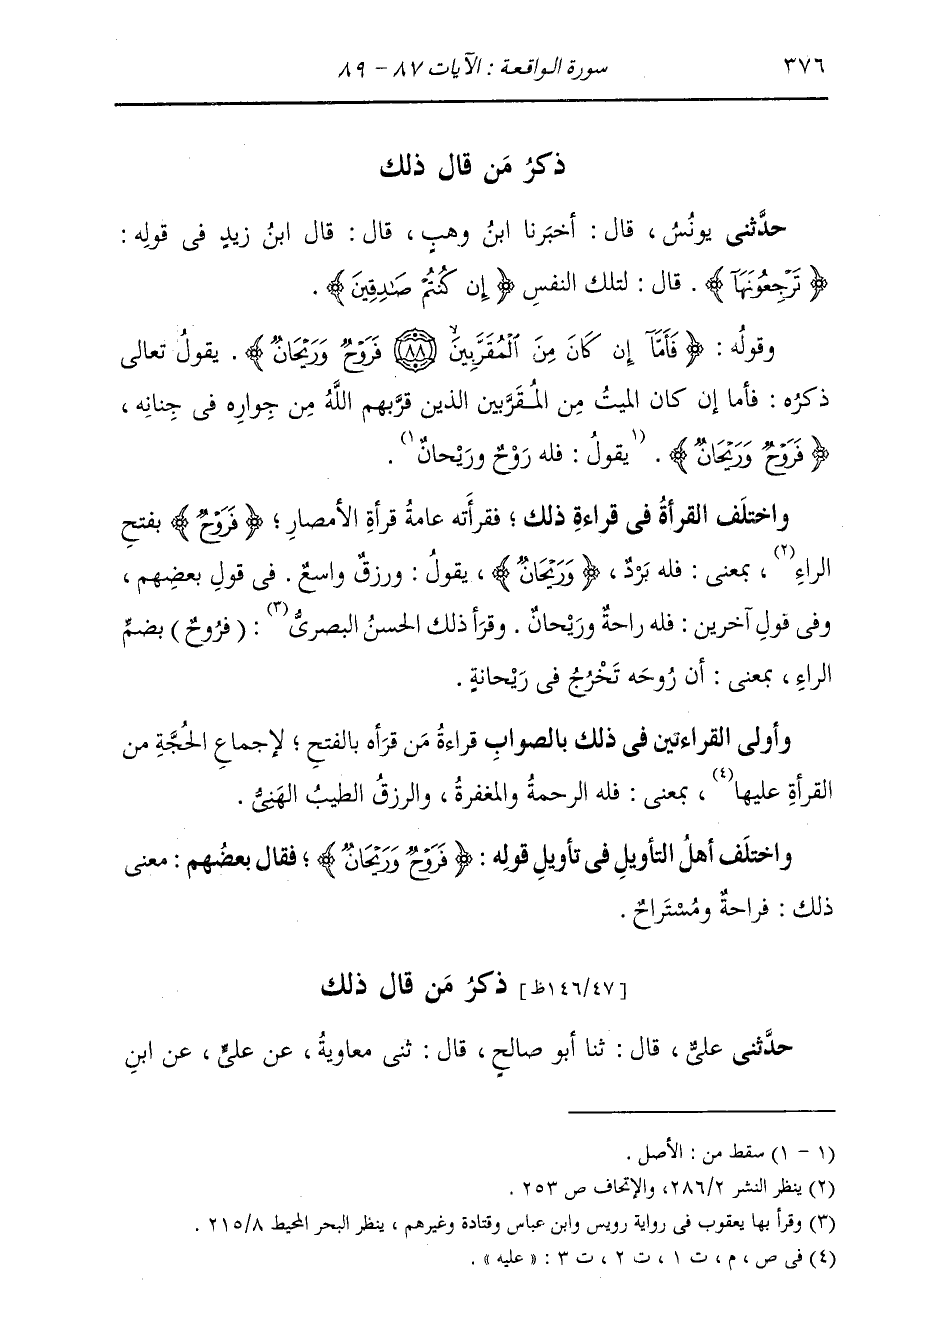 ٣٧٦ سورة الواقعة : الآيات ٨٧ - ٨٩
ذكرُ مَن قال ذلك
حدَّثنى يونُسُ ، قال : أخبَرنا ابنُ وهبٍ ، قال : قال ابنُ زيدٍ فى قولِه :
﴿ تَرْجِعُونَهَآ ﴾ . قال : لتلك النفسِ ﴿ إِن كُنتُمْ صَٰدِقِينَ ﴾ .
وقولُه : ﴿ فَأَمَّآ إِن كَانَ مِنَ ٱلْمُقَرَّبِينَ ۙ (٨٨) فَرَوْحٌ وَرَيْحَانٌ ﴾ . يقولُ تعالى
ذكرُه : فأما إن كان الميتُ مِن المُقَرَّبين الذين قرَّبهم اللَّهُ مِن جِوارِه فى جِنانِه ،
﴿ فَرَوْحٌ وَرَيْحَانٌ ﴾ . (١ يقولُ : فله رَوْحٌ ورَيْحانٌ ١) .
واختلَف القرأةُ فى قراءةِ ذلك ؛ فقرأَته عامةُ قرأةِ الأمصارِ ؛ ﴿ فَرَوْحٌ ﴾ بفتحِ
الراءِ (٢) ، بمعنى : فله بَرْدٌ ، ﴿ وَرَيْحَانٌ ﴾ ، يقولُ : ورزقٌ واسعٌ . فى قولِ بعضِهم ،
وفى قولِ آخرين : فله راحةٌ ورَيْحانٌ . وقرَأ ذلك الحسنُ البصرىُّ (٣) : ( فرُوحٌ ) بضمِّ
الراءِ ، بمعنى : أن رُوحَه تَخْرُجُ فى رَيْحانةٍ .
وأولى القراءتين فى ذلك بالصوابِ قراءةُ مَن قرَأه بالفتحِ ؛ لإجماعِ الحُجَّةِ من
القرأةِ عليها (٤) ، بمعنى : فله الرحمةُ والمغفرةُ ، والرزقُ الطيبُ الهَنِىُّ .
واختلَف أهلُ التأويلِ فى تأويلِ قولِه : ﴿ فَرَوْحٌ وَرَيْحَانٌ ﴾ ؛ فقال بعضُهم : معنى
ذلك : فراحةٌ ومُسْتَراحٌ .
[١٤٦/٤٧ظ] ذكرُ مَن قال ذلك
حدَّثنى علىٌّ ، قال : ثنا أبو صالحٍ ، قال : ثنى معاويةُ ، عن علىٍّ ، عن ابنِ
(١ - ١) سقط من : الأصل .
(٢) ينظر النشر ٢٨٦/٢، والإتحاف ص ٢٥٣ .
(٣) وقرأ بها يعقوب فى رواية رويس وابن عباس وقتادة وغيرهم ، ينظر البحر المحيط ٢١٥/٨ .
(٤) فى ص ، م ، ت ١ ، ت ٢ ، ت ٣ : « عليه » .